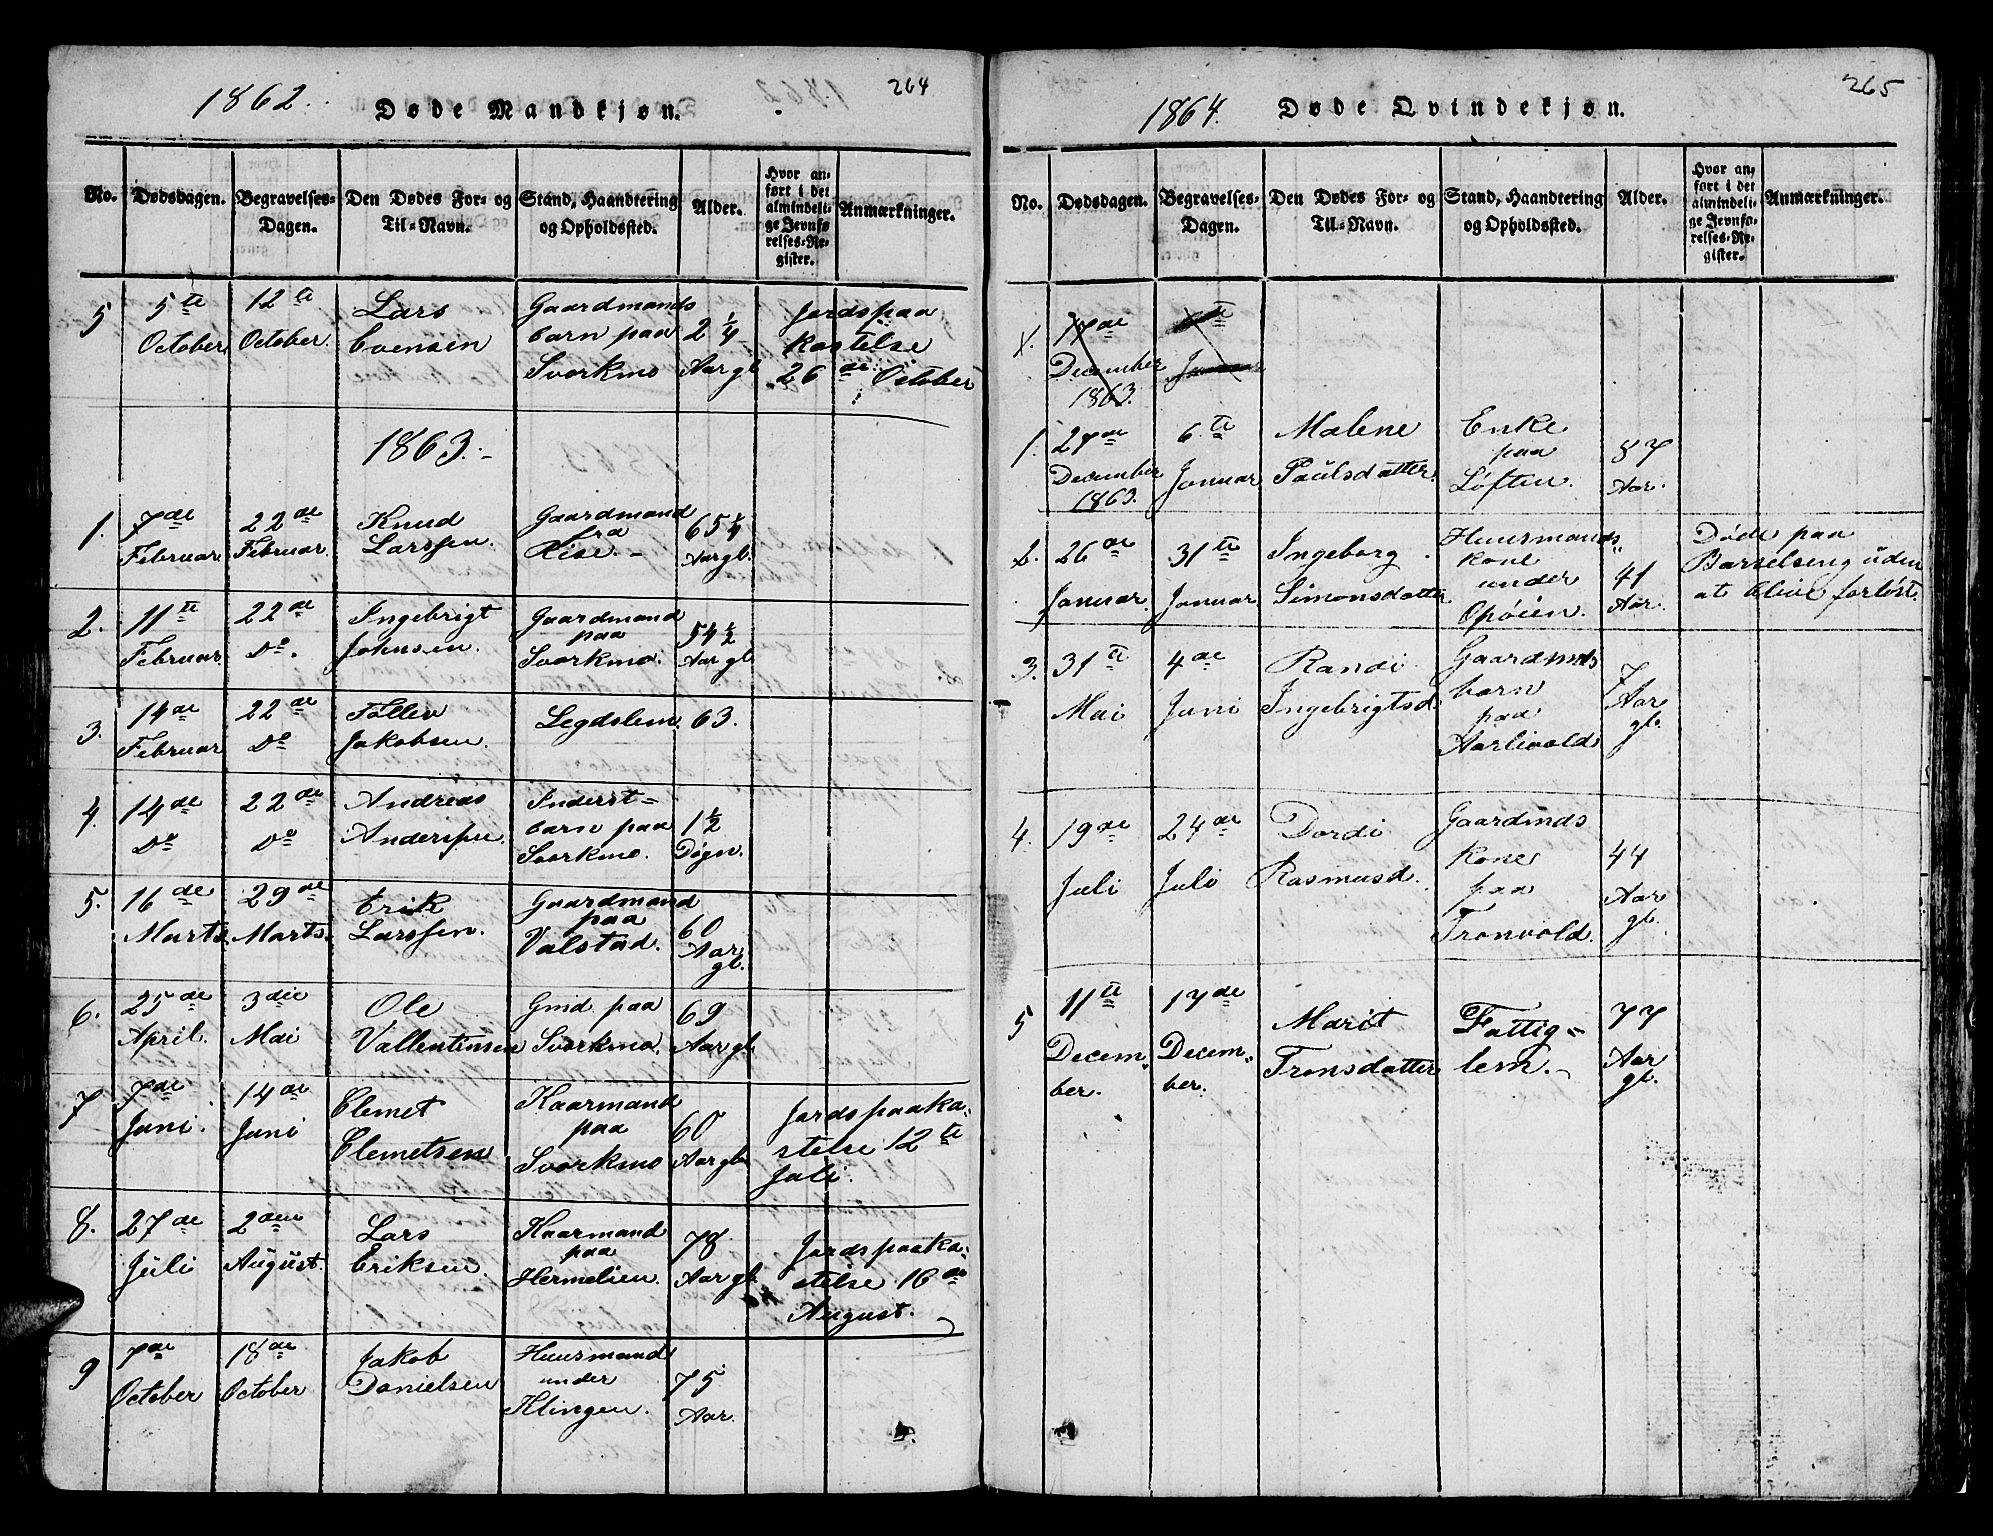 1862.
Døde Mandkjøn.
264
No.
Dødsdagen.
Begravelses-
Dagen.
Den Dødes For- og
Til-Navn.
Stand, Haandtering
og Opholdssted.
Alder.
Hvor an-
ført i det
almindeli-
ge Jevnfø-
relses-Re-
gister.
Anmærkninger.
5
5te
October
12te
October.
Lars
Evensen
Gaardmands
barn paa
Svorkmo
2 1/4
Aar gl.
Jordspaa
kastelse
26de October
1863.
1.
7de
Februar
22de
Februar.
Knud
Larssen.
Gaardmand
fra
Rise.
65 1/4
Aar gl.
2.
11te
Februar
22de
Do.
Ingebrigt
Johnsen.
Gaardmand
paa
Svorkmo.
54 1/2
Aar gl.
3.
14de
Februar
22de
Do
Tollev
Jakobsen.
Legdslem.
63.
4.
14de
Do
22de
Do
Andreas
Anderssen.
Inderst=
barn paa
Svorkmo.
1 1/2
Døgn.
5.
16de
Marts.
29de
Marts.
Erik
Larssen.
Gaardmand
paa
Valstad.
60
Aar
gl.
6.
25de
April.
3die
Mai
Ole
Vallentinsen
Gmd paa
Svorkmo.
69
Aar gl.
7
7de
Juni.
14de
Juni
Clemet
Clemetsen
Kaarmand
paa
Svorkmo
60
Aar gl.
Jordspaaka=
stelse 12te
Juli.
8.
27de
Juli
2den
August.
Lars
Eriksen.
Kaarmand
paa
Hermelien.
78
Aar gl.
Jordspaaka=
stelse 16de
August.
9
7de
October
18de
October
Jakob
Danielsen
Huusmand
under
Klingen.
75
Aar.
1864.
Døde Qvindekjøn.
265
No.
Dødsdagen.
Begravelses-
Dagen.
Den Dødes For- og
Til-Navn.
Stand, Haandtering
og Opholdssted.
Alder.
Hvor an-
ført i det
almindeli-
ge Jevnfø-
relses-Re-
gister.
Anmærkninger.
1.
17de
December
1863.
Januar
1.
27de
December
1863.
6te
Januar
Malene
Paulsdatter.
Enke
paa
Løften.
87
Aar.
2.
26de
Januar.
31te
Januar
Ingeborg
Simonsdatter
Huusmands
kone
under
Opøien.
41
Aar.
Døde paa
Barselseng uden
at blive forløst.
3.
31te
Mai
4de
Juni
Randi
Ingebrigtsd.
Gaardmds
barn
paa
Aarlivold
7
Aar
gl.
4.
19de
Juli
24de
Juli
Dordi
Rasmusd.
Gaardmds
kone
paa
Tronvold.
44
Aar
gl.
5
11te
Decem-
ber.
17de
Decem-
ber.
Marit
Tronsdatter
Fattig=
lem.
77
Aar
gl.